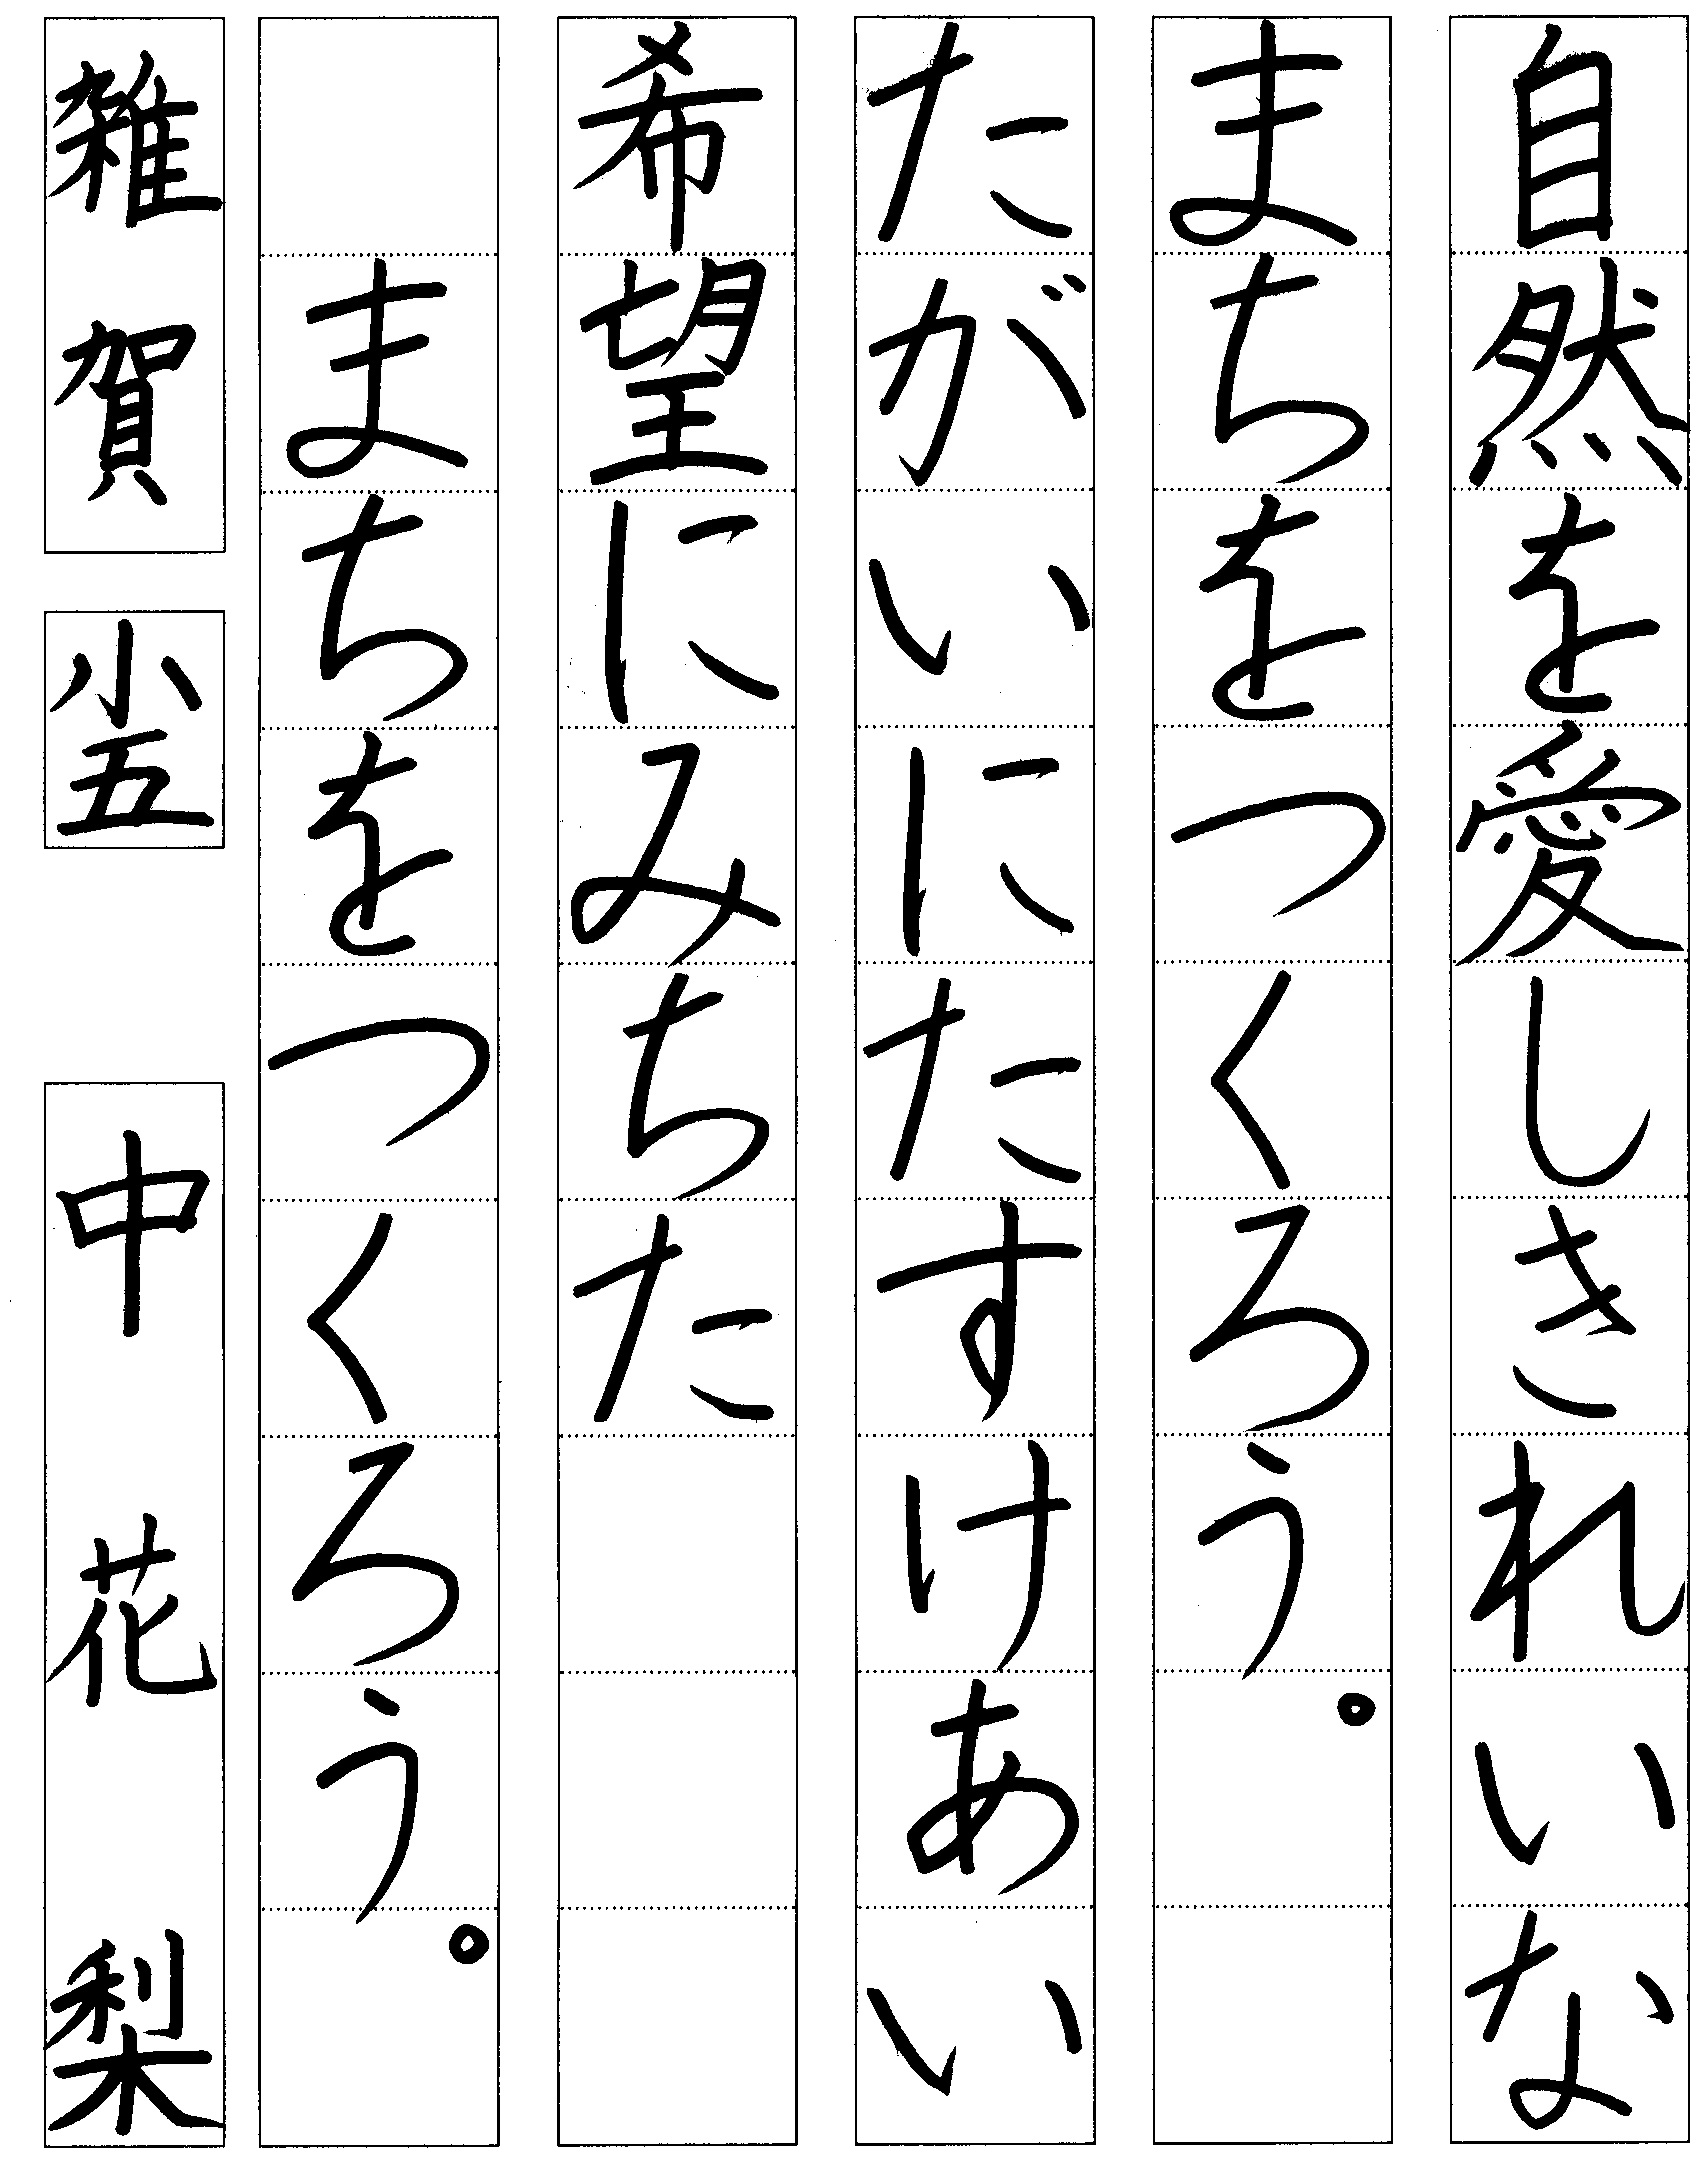 自然を愛しきれいな
まちをつくろう。
たがいにたすけあい
希望にみちた
まちをつくろう。
雑賀 小五 中花梨